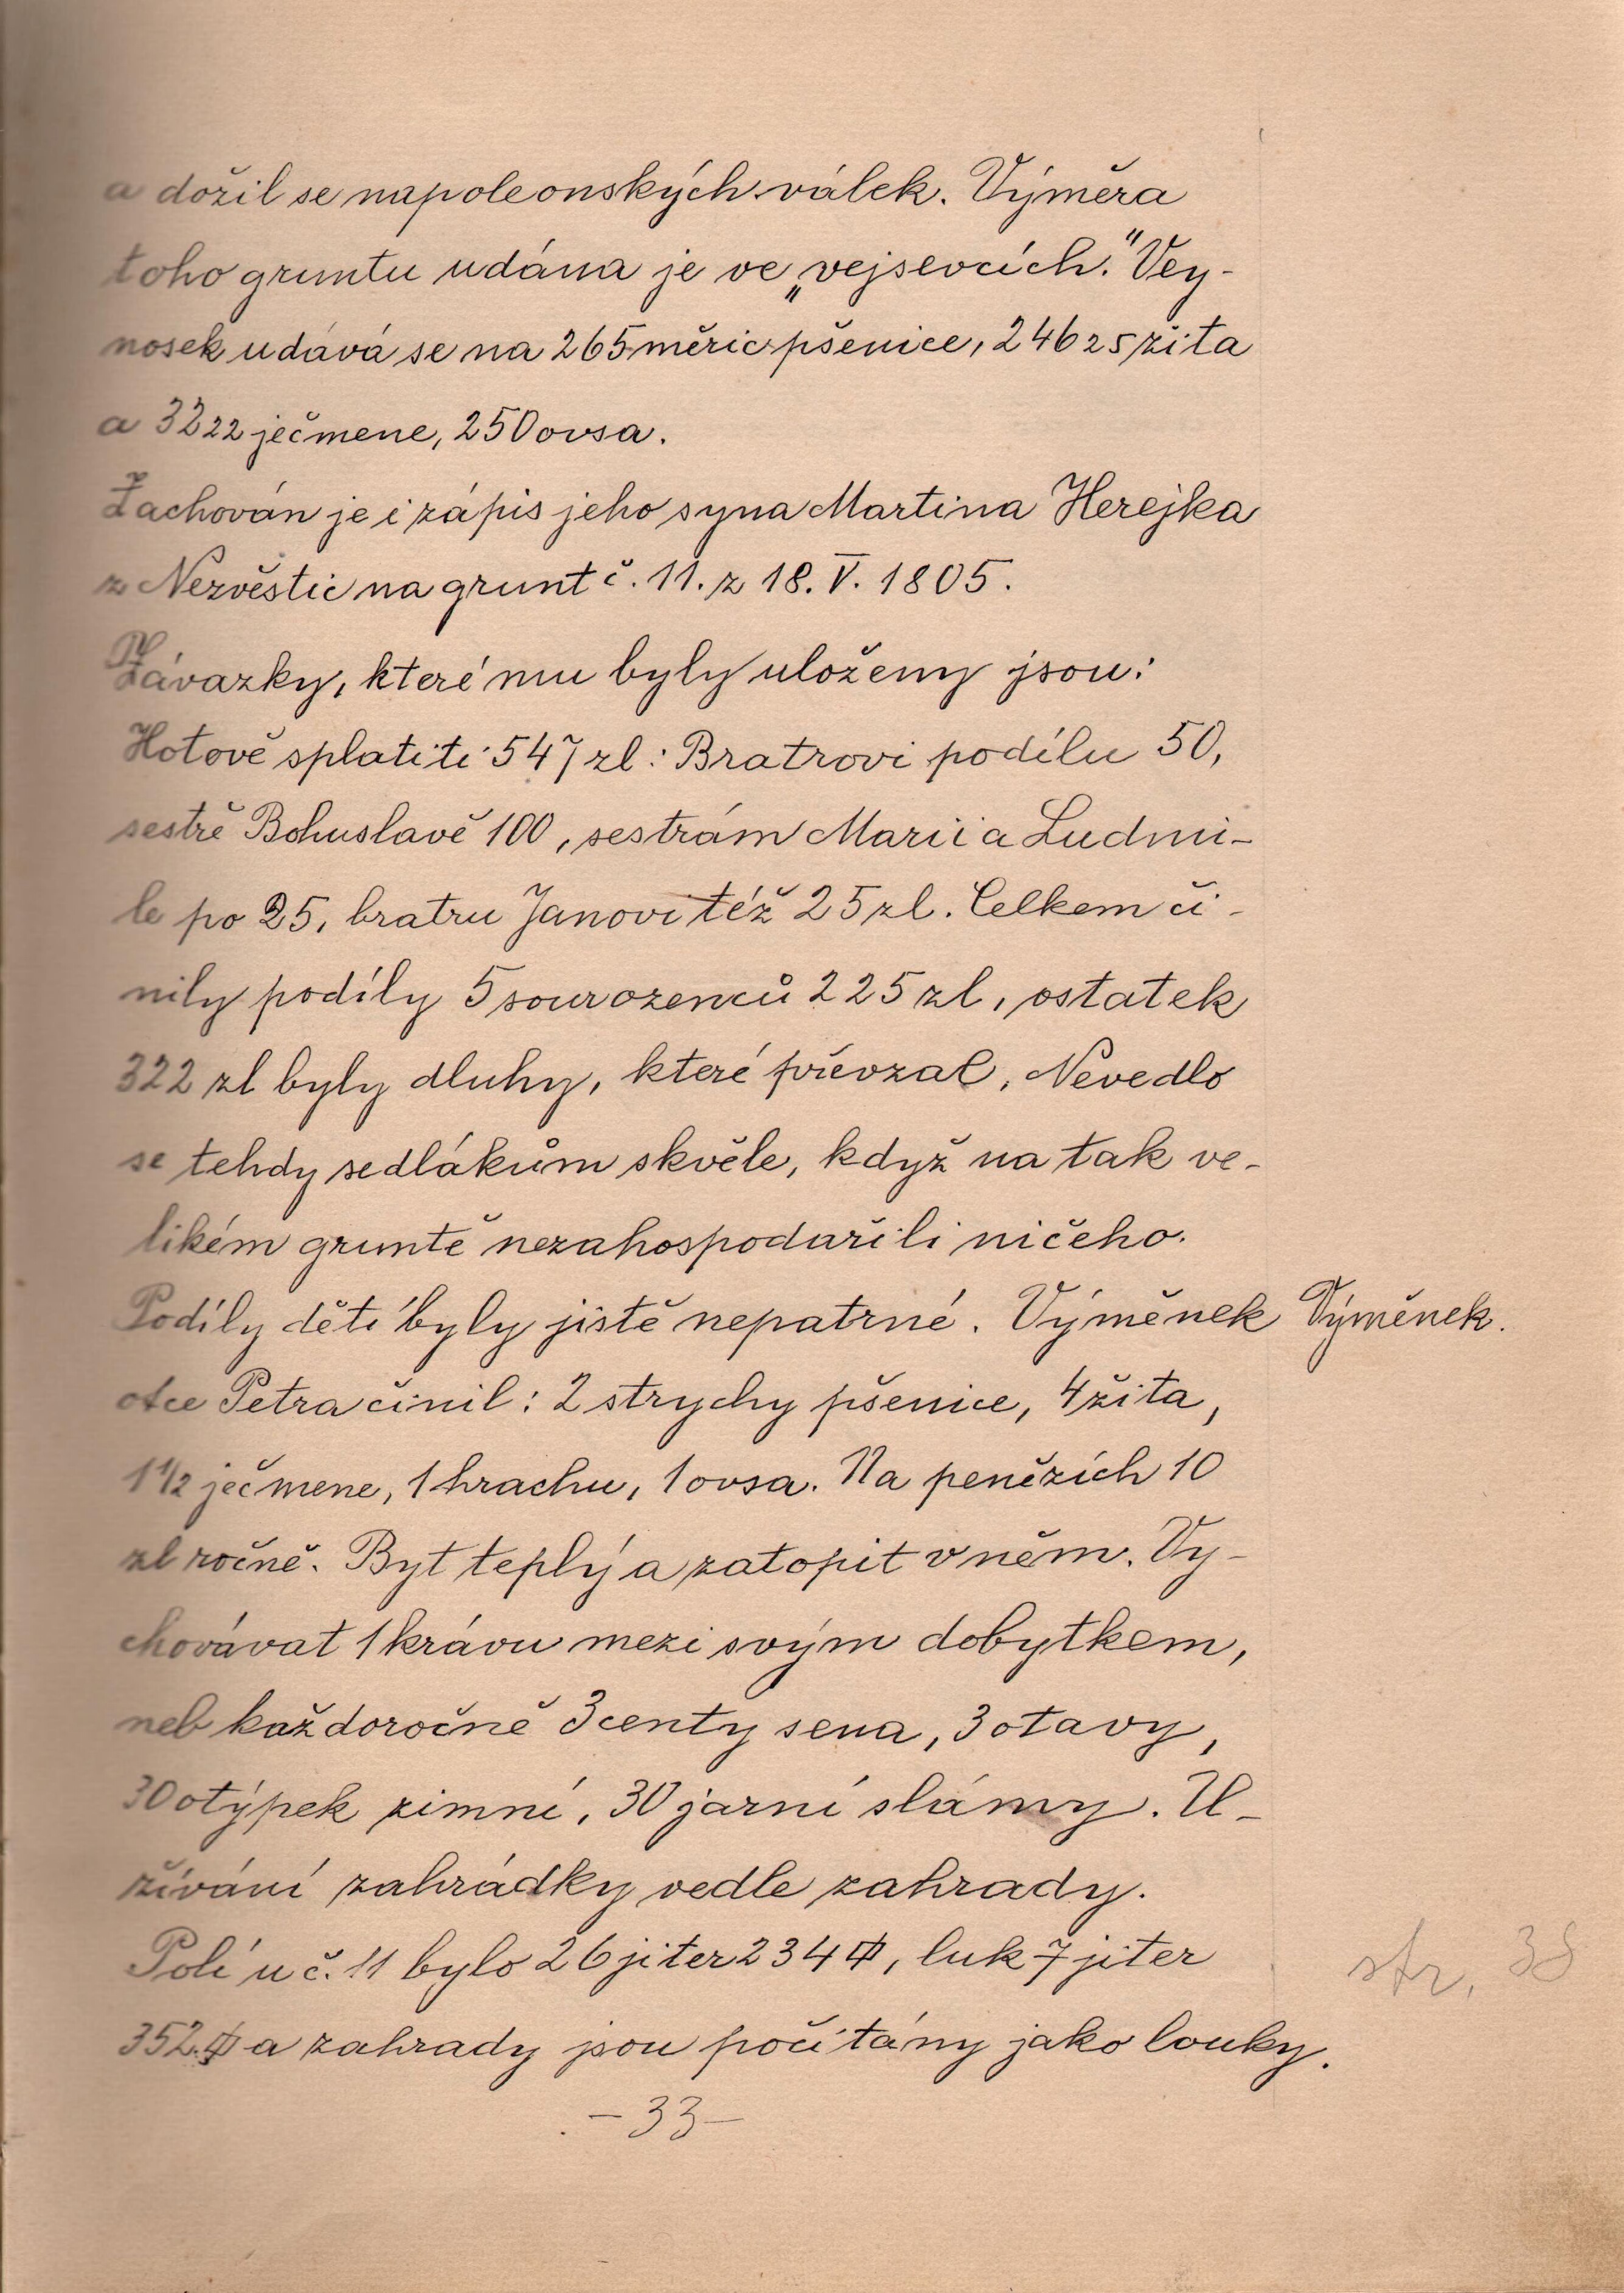 a dožil se napoleonských válek. Výměra
toho gruntu udána je ve „vejsevcích." Vey-
nosek udává se na 265 měřic pšenice, 246 25 žita
a 32 22 ječmene, 250 ovsa.
Zachován je i zápis jeho syna Martina Herejka
z Nezvěstic na grunt č. 11. z 18. V. 1805.
Závazky, které mu byly uloženy jsou:
Hotově splatiti 547 zl: Bratrovi podílu 50,
sestře Bohuslavě 100, sestrám Marii a Ludmi-
le po 25, bratru Janovi též 25 zl. Celkem či-
nily podíly 5 sourozenců 225 zl, ostatek
322 zl byly dluhy, které převzal. Nevedlo
se tehdy sedlákům skvěle, když na tak ve-
likém gruntě nezahospodařili ničeho.
Podíly dětí byly jistě nepatrné. Výměnek Výměnek.
otce Petra činil: 2 strychy pšenice, 4 žita,
1 1/2 ječmene, 1 hrachu, 1 ovsa. Na penězích 10
zl ročně. Byt teplý a zatopit v něm. Vy-
chovávat 1 krávu mezi svým dobytkem,
neb každoročně 3 centy sena, 3 otavy,
30 otýpek zimní, 30 jarní slámy. U-
žívání zahrádky vedle zahrady.
Polí u č. 11 bylo 26 jiter 234, luk 7 jiter
352 a zahrady jsou počítány jako louky.
str. 38
- 33 -